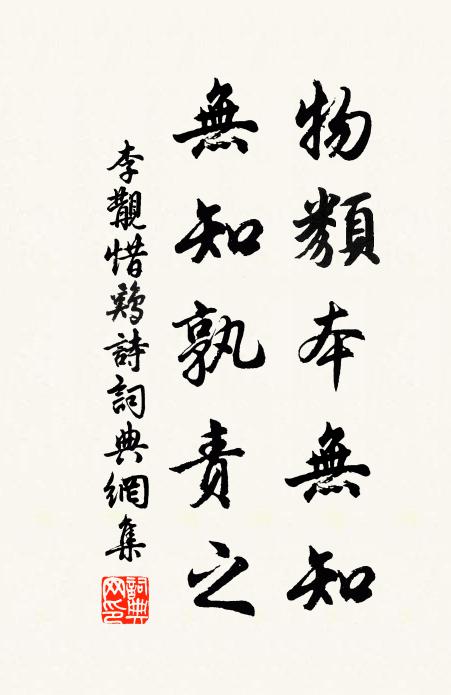 物類本無知
無知孰責之
李覯惜鷄詩詞典網集
詞典
网印